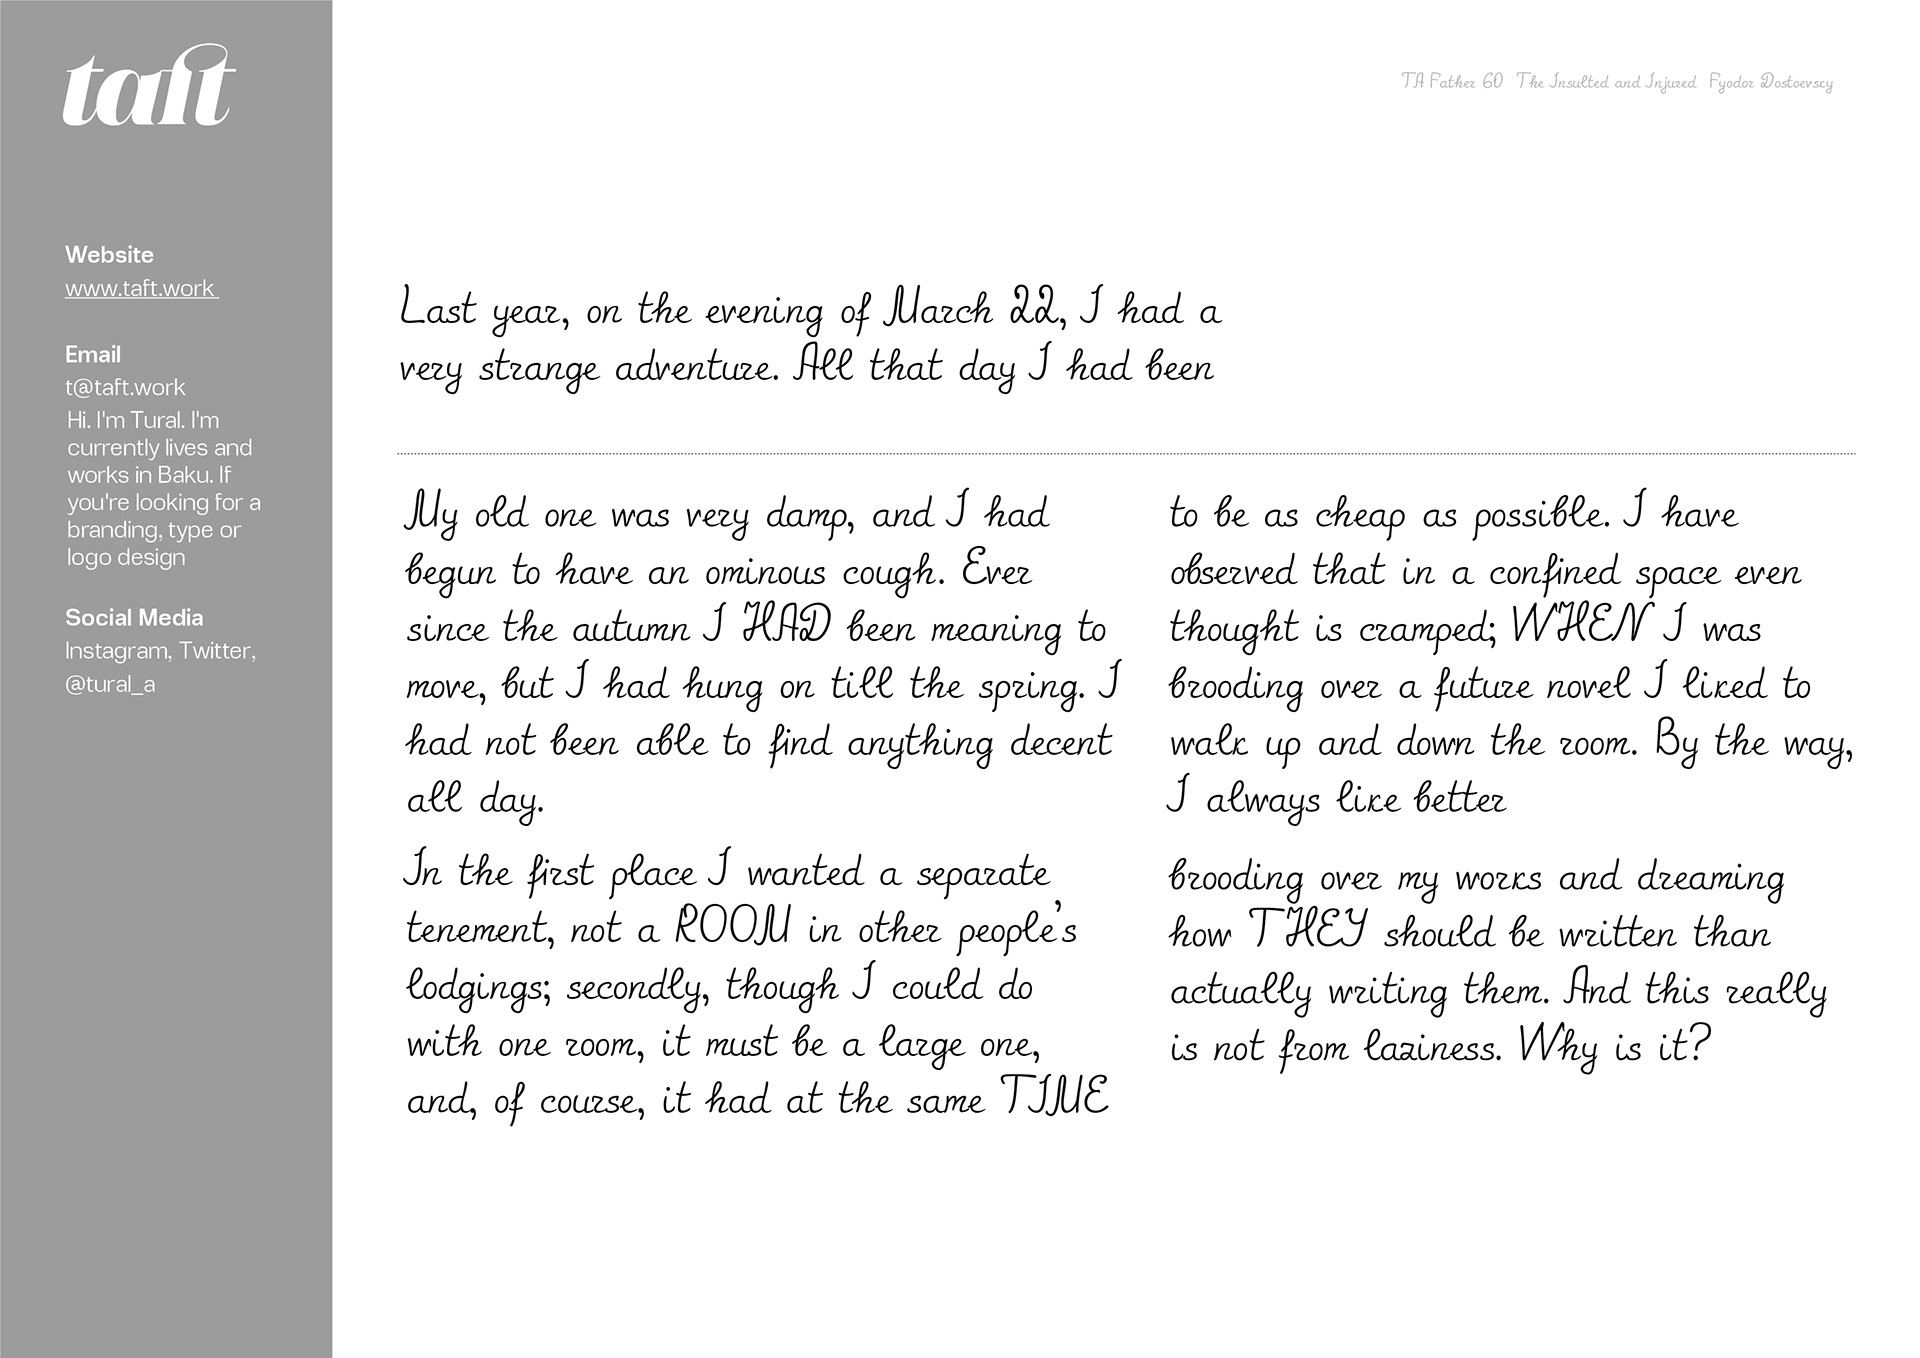 taft
Website
www.taft.work
Email
t@taft.work
Hi. I'm Tural. I'm
currently lives and
works in Baku. If
you're looking for a
branding, type or
logo design
Social Media
Instagram, Twitter,
@tural_a
TA Father 60 The Insulted and Injured Fyodor Dostoevscy
Last year, on the evening of March 22, I had a
very strange adventure. All that day I had been
My old one was very damp, and I had
begun to have an ominous cough. Ever
since the autumn I HAD been meaning to
move, but I had hung on till the spring. I
had not been able to find anything decent
all day.
In the first place I wanted a separate
tenement, not a ROOM in other people’s
lodgings; secondly, though I could do
with one room, it must be a large one,
and, of course, it had at the same TIME
to be as cheap as possible. I have
observed that in a confined space even
thought is cramped; WHEN I was
brooding over a future novel I liked to
walk up and down the room. By the way,
I always like better
brooding over my works and dreaming
how THEY should be written than
actually writing them. And this really
is not from laziness. Why is it?